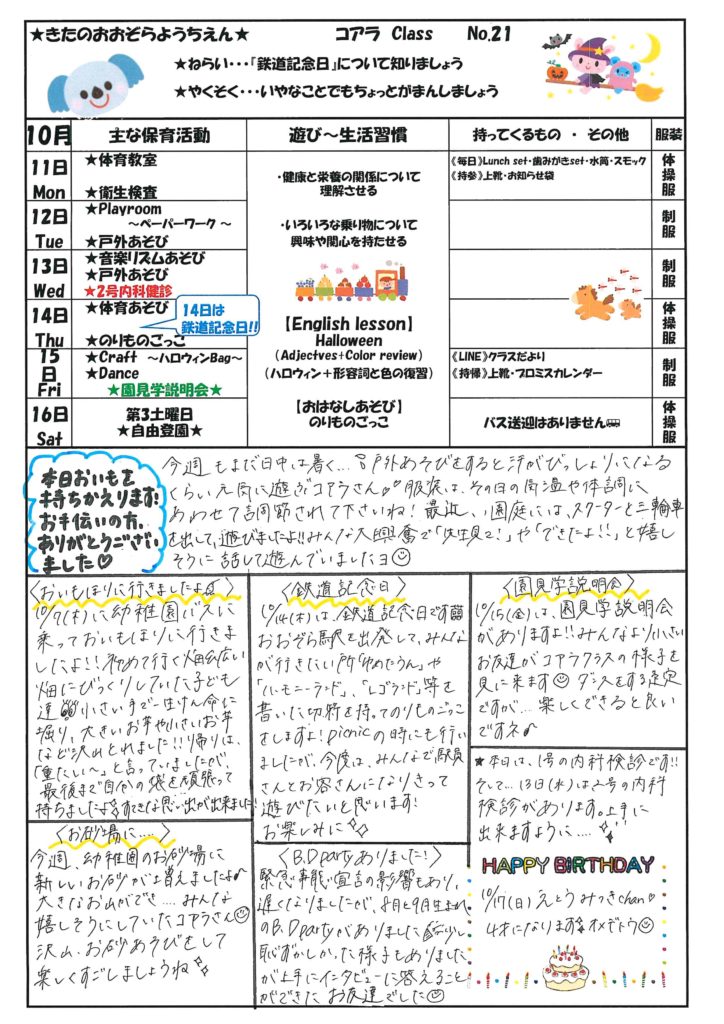 ★きたのおおぞらようちえん★ コアラ Class No.21
★ねらい・・・「鉄道記念日」について知りましょう
★やくそく・・・いやなことでもちょっとがまんしましょう
10月 主な保育活動 遊び～生活習慣 持ってくるもの ・ その他 服装
11日 Mon
★体育教室
★衛生検査
《毎日》Lunch set・歯みがきset・水筒・スモック
《持参》上靴・お知らせ袋
体操服
12日 Tue
★Playroom
～ペーパーワーク ～
★戸外あそび
制服
13日 Wed
★音楽リズムあそび
★戸外あそび
★2号内科健診
制服
14日 Thu
★体育あそび
★のりものごっこ
14日は
鉄道記念日!!
体操服
15日 Fri
★Craft ～ハロウィンBag～
★Dance
★園見学説明会★
《LINE》クラスだより
《持帰》上靴・プロミスカレンダー
制服
16日 Sat
第3土曜日
★自由登園★
バス送迎はありません
体操服
・健康と栄養の関係について
理解させる
・いろいろな乗り物について
興味や関心を持たせる
【English lesson】
Halloween
(Adjectves+Color review)
(ハロウィン+形容詞と色の復習)
【おはなしあそび】
のりものごっこ
本日おいもを
持ちかえります!
お手伝いの方。
ありがとうござい
ました♡
今週もまだ日中は暑く…戸外あそびをすると汗がびっしょりになる
くらい元気に遊ぶコアラさん♪服装は、その日の気温や体調に
あわせて調節されて下さいね! 最近、園庭には、スクーターと三輪車
を出して、遊びましたよ!!みんな大興奮で「先生見て!」や「できたよ!!」と嬉し
そうに話して遊んでいましたヨ
〈おいもほりに行きましたよ〉
10/7(木)に幼稚園バスに
乗っておいもほりに行きま
したよ!!初めて行く畑に広い
畑にびっくりしていた子ども
達 小さい手で一生けん命に
掘り、大きいお芋や小さいお芋
など沢山とれました!!帰りは、
「重たい～」と言っていましたが、
最後まで自分の袋を頑張って
持ちましたよ すてきな思い出が出来ました!
〈鉄道記念日〉
10/14(木)は、鉄道記念日です
おおぞら駅を出発して、みんな
が行きたい所「わったうん」や
「ハーモニーランド」、「レゴランド」等を
書いた切符を持ってのりものごっこ
をしますよ! picnicの時にも行い
ましたが、今度は、みんなで駅員
さんとお客さんになりきって
遊びたいと思います!
お楽しみに
〈園見学説明会〉
10/15(金)は、園見学説明会
がありますよ!!みんなより小さい
お友達がコアラクラスの様子を
見に来ます ダンスをする予定
ですが… 楽しくできると良い
ですネ♪
★本日は、1号の内科検診です!!
そして… 13日(水)は2号の内科
検診があります。上手に
出来ますように….
〈お砂場に….〉
今週、幼稚園のお砂場に
新しいお砂が増えましたよ
大きなお山ができ…. みんな
嬉しそうにしていたコアラさん
沢山、お砂あそびをして
楽しくすごしましょうね
〈B.D partyありました!〉
緊急事態宣言の影響もあり、
遅くなりましたが、8月と9月生まれ
のB.D partyがありました 少し
恥ずかしがった様子もありました
が上手にインタビューに答えること
ができた お友達でした
HAPPY BIRTHDAY
10/17(日) えとうみつきchan
4才になります オメデトウ